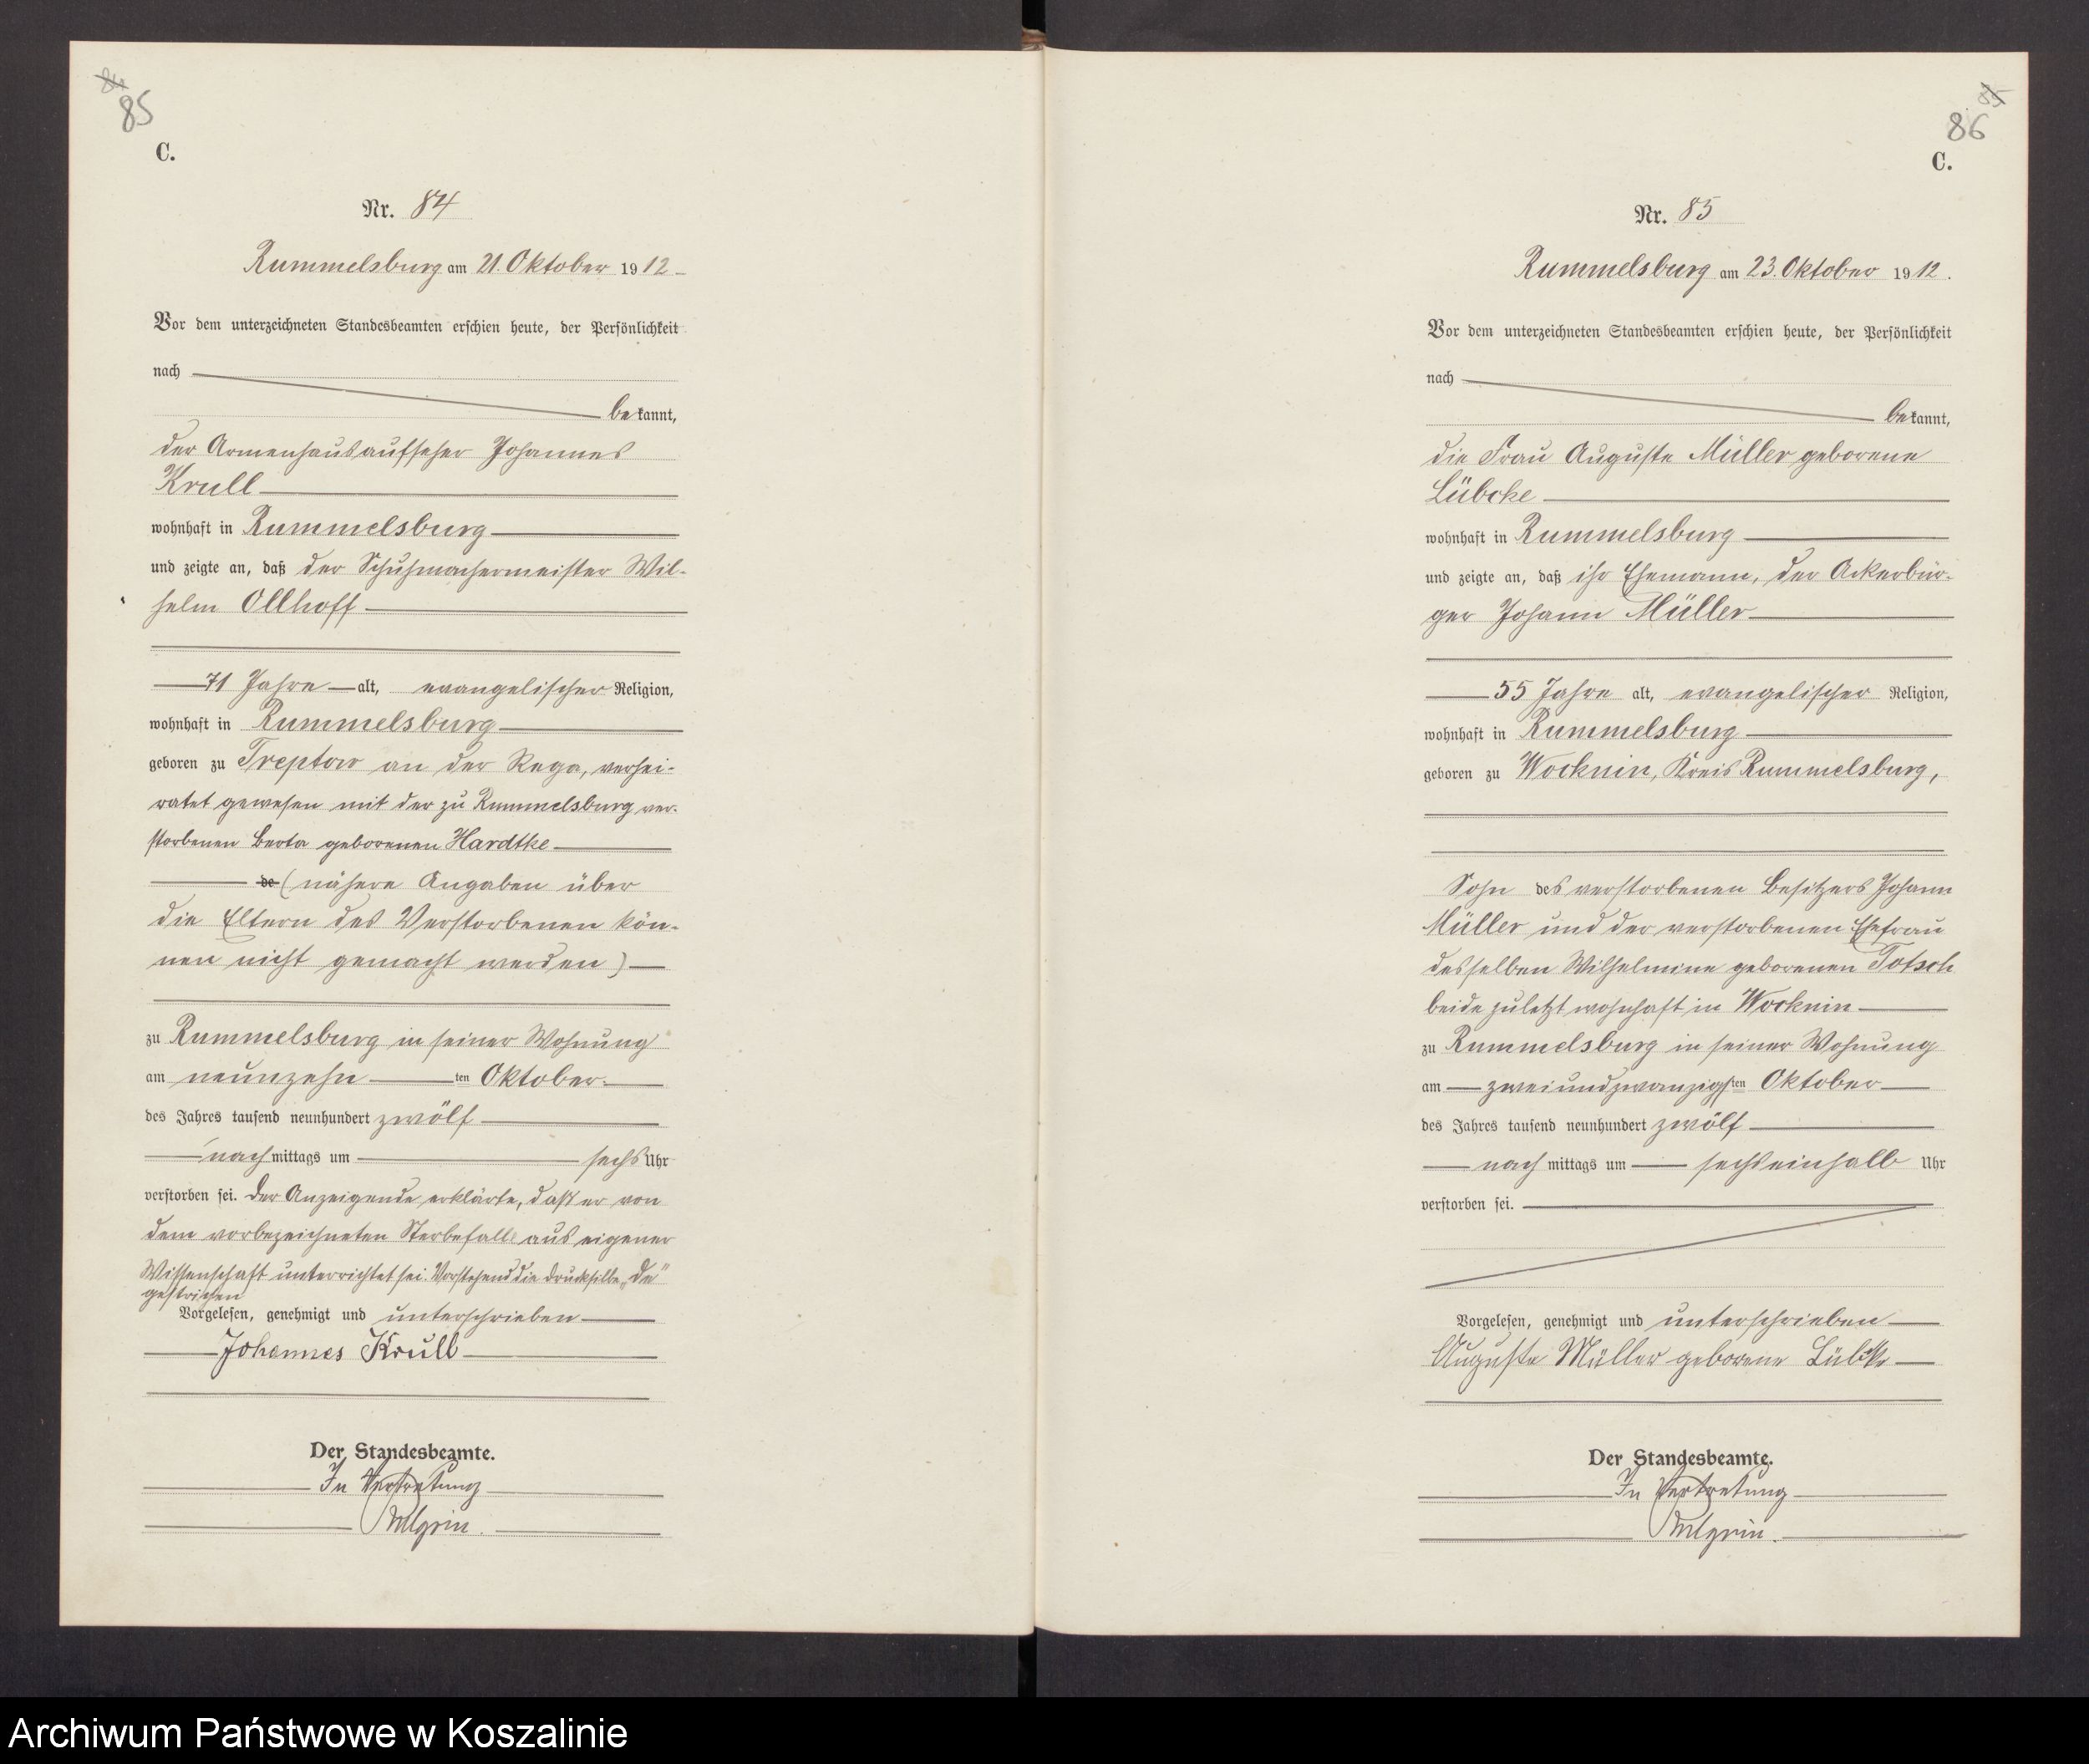 84
85
C.
Nr. 84
Rummelsburg am 21. Oktober 1912
Vor dem unterzeichneten Standesbeamten erschien heute, der Persönlichkeit
nach
bekannt,
der Armenhausaufseher Johannes
Krull
wohnhaft in Rummelsburg
und zeigte an, daß der Schuhmachermeister Wil-
helm Ollhoff
71 Jahre alt, evangelischer Religion,
wohnhaft in Rummelsburg
geboren zu Treptow an der Rega, verhei-
ratet gewesen mit der zu Rummelsburg ver-
storbenen Berta geborenen Hardtke
de (nähere Angaben über
die Eltern des Verstorbenen kön-
nen nicht gemacht werden)
zu Rummelsburg in seiner Wohnung
am neunzehnten Oktober
des Jahres tausend neunhundert zwölf
nachmittags um sechs Uhr
verstorben sei. Der Anzeigende erklärte, daß er von
dem vorbezeichneten Sterbefalle aus eigener
Wissenschaft unterrichtet sei. Vorstehend die Drucksilbe „de"
gestrichen
Vorgelesen, genehmigt und unterschrieben
Johannes Krull
Der Standesbeamte.
In Vertretung
85
86
C.
Nr. 85
Rummelsburg am 23. Oktober 1912.
Vor dem unterzeichneten Standesbeamten erschien heute, der Persönlichkeit
nach
bekannt,
die Frau Auguste Müller geborene
Lübcke
wohnhaft in Rummelsburg
und zeigte an, daß ihr Ehemann, der Ackerbür-
ger Johann Müller
55 Jahre alt, evangelischer Religion,
wohnhaft in Rummelsburg
geboren zu Wocknin, Kreis Rummelsburg,
Sohn des verstorbenen Besitzers Johann
Müller und der verstorbenen Ehefrau
desselben Wilhelmine geborenen Totsch
beide zuletzt wohnhaft in Wocknin
zu Rummelsburg in seiner Wohnung
am zweiundzwanzigsten Oktober
des Jahres tausend neunhundert zwölf
nachmittags um sechseinhalb Uhr
verstorben sei.
Vorgelesen, genehmigt und unterschrieben
Auguste Müller geborene Lübcke
Der Standesbeamte.
In Vertretung
Archiwum Państwowe w Koszalinie